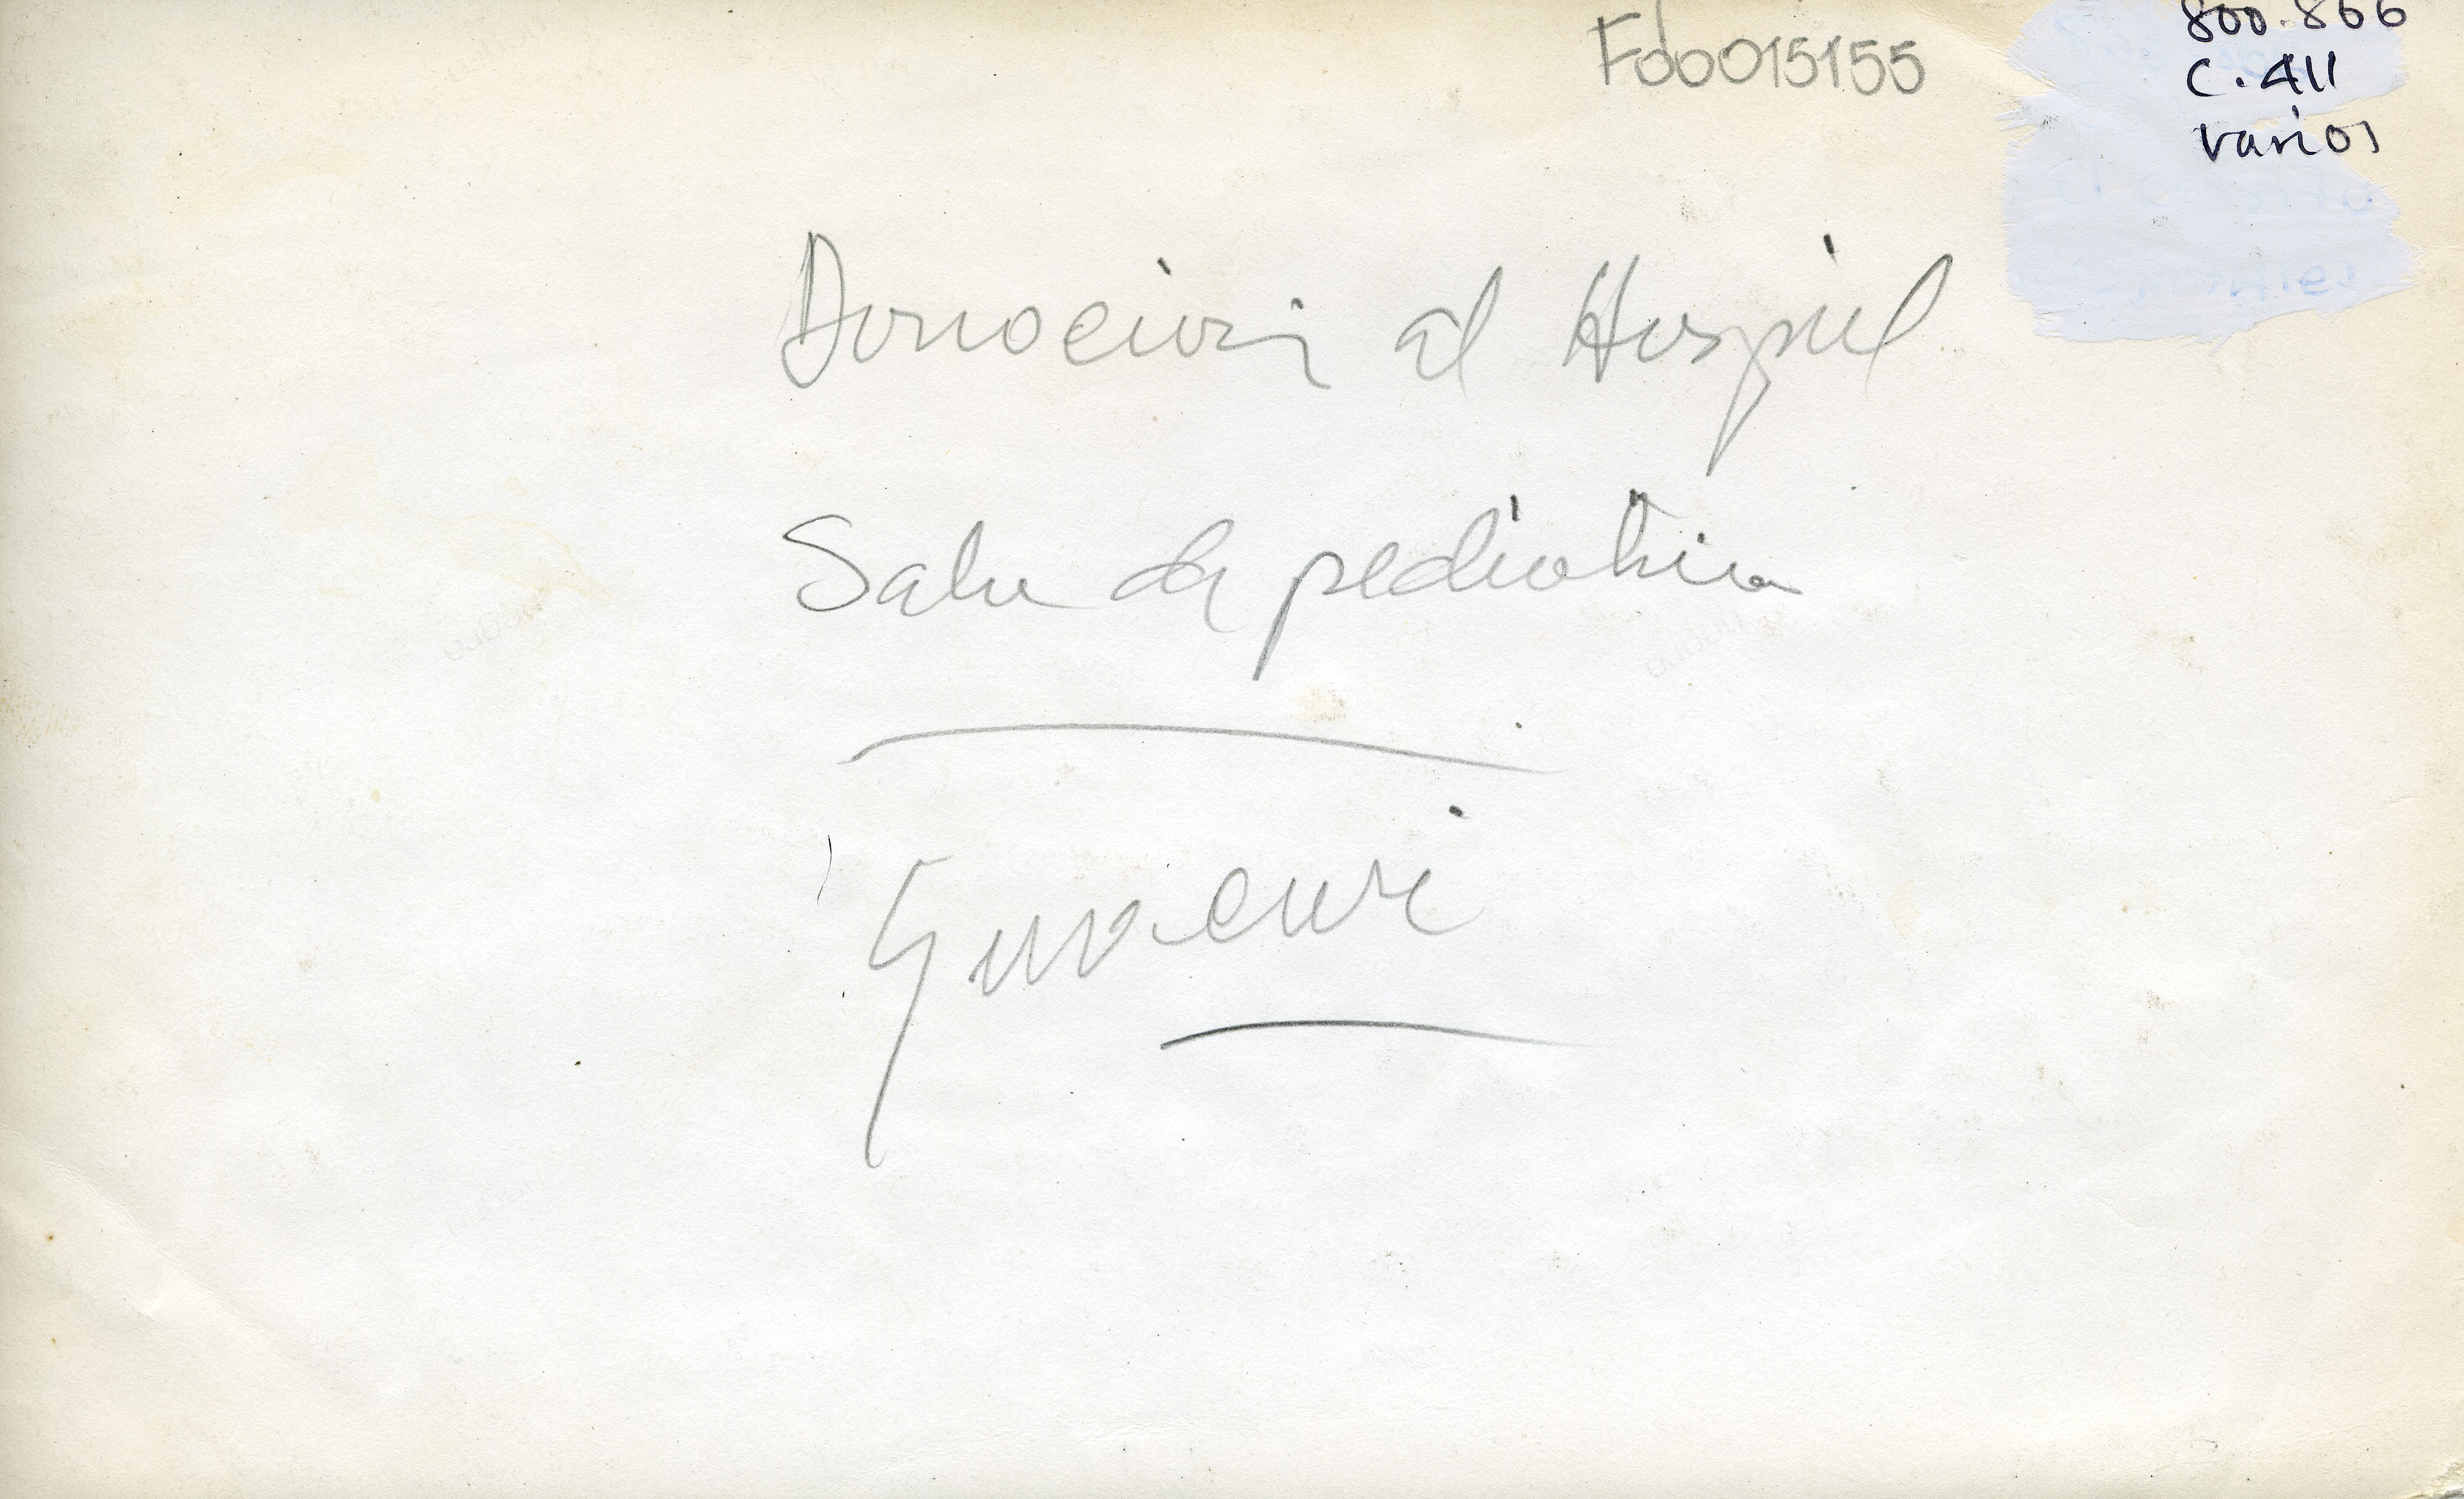 Fdb015155
800.866
C.411
varios
Donocion al Hospitel
Sala de pediatria